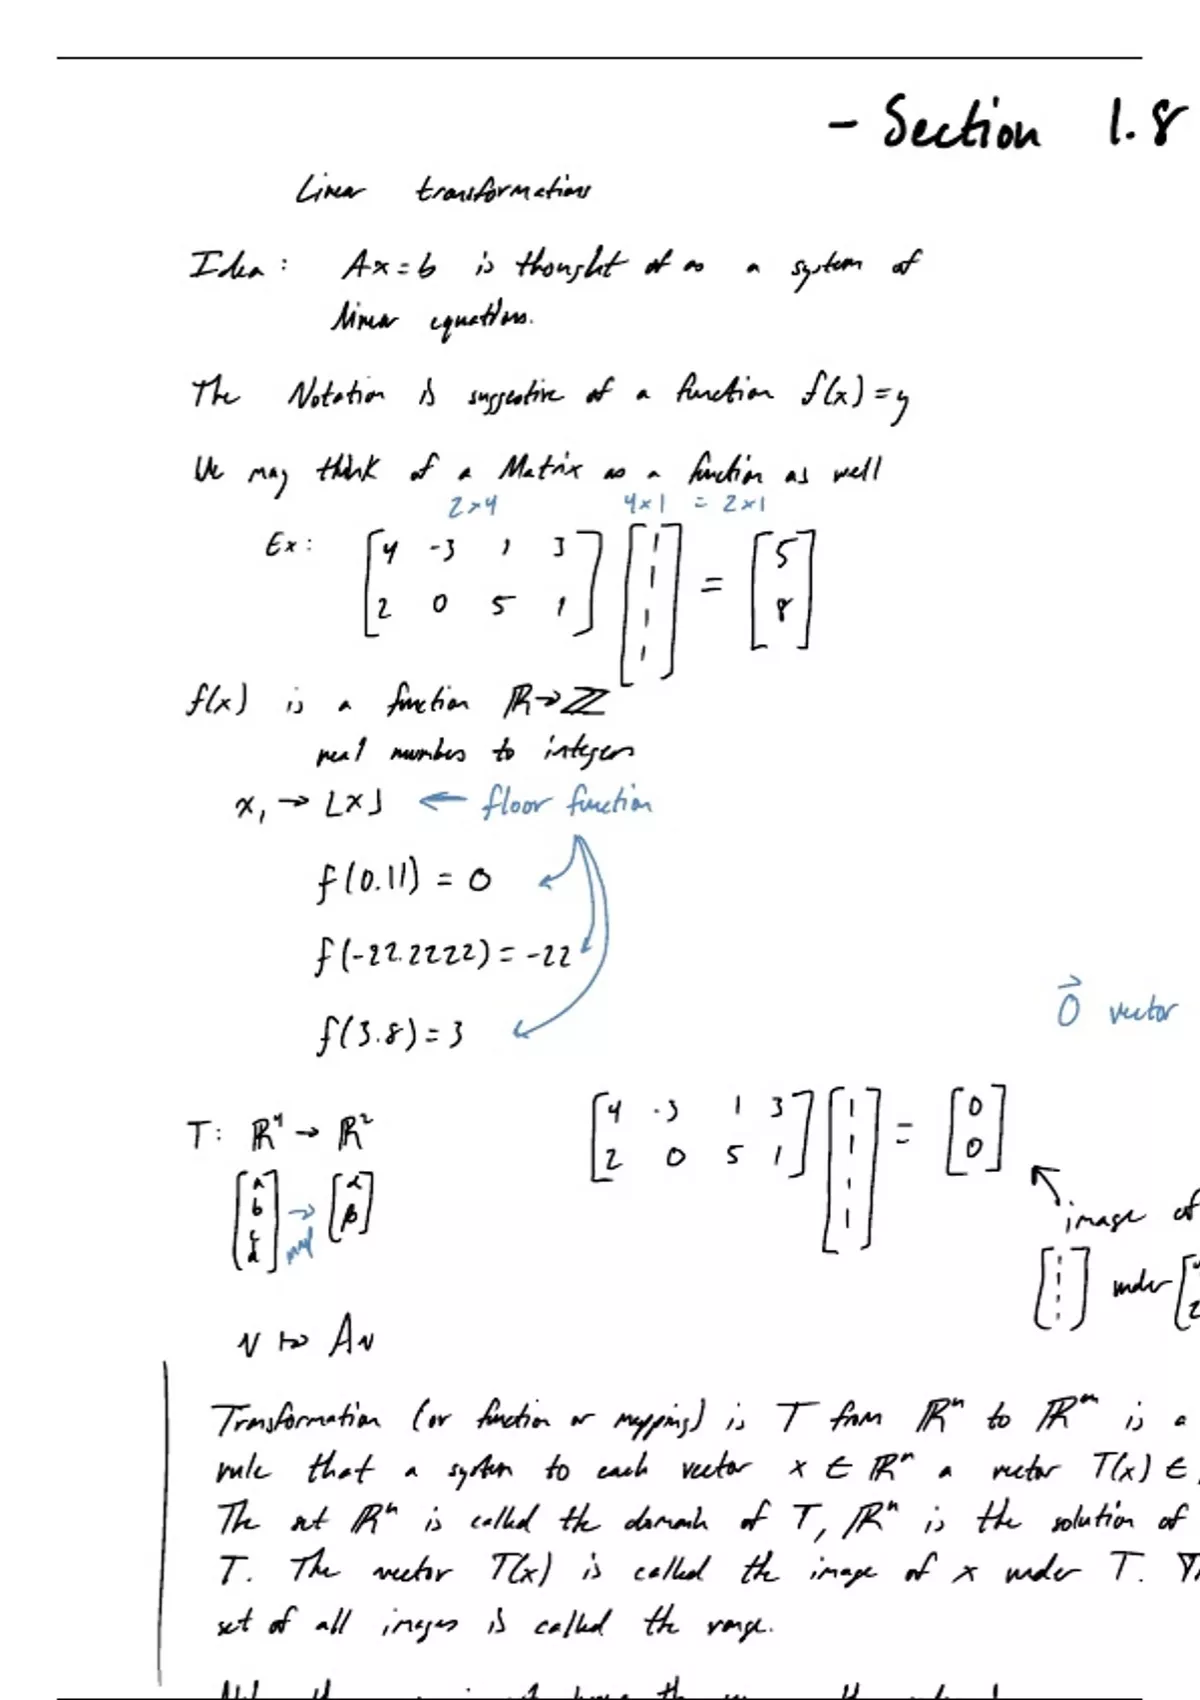 - Section 1.8
Linear transformations
Idea: Ax=b is thought of as a system of
linear equations.
The Notation is suggestive of a function f(x)=y
We may think of a Matrix as a function as well
2×4 4×1 = 2×1
Ex: [4 -3 1 3; 2 0 5 1] [1; 1; 1; 1] = [5; 8]
f(x) is a function ℝ→ℤ
real numbers to integers
x, → ⌊x⌋ ← floor function
f(0.11) = 0
f(-22.2222) = -22
f(3.8) = 3
0⃗ vector
T: ℝ⁴ → ℝ²
[a; b; c; d] → [α; β]
map
[4 -3 1 3; 2 0 5 1] [1; 1; 1; 1] = [0; 0]
image of
[1; 1; 1; 1] under [4; 2
v ↦ Av
Transformation (or function or mapping) is T from ℝⁿ to ℝᵐ is a
rule that a system to each vector x ∈ ℝⁿ a vector T(x) ∈
The set ℝⁿ is called the domain of T, ℝⁿ is the solution of
T. The vector T(x) is called the image of x under T. Th
set of all images is called the range.